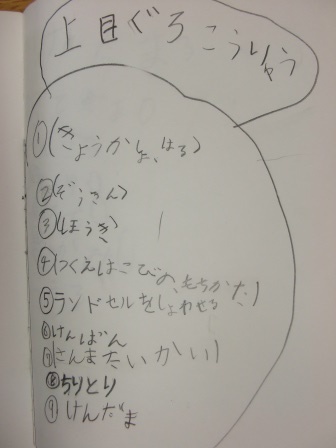 上目ぐろこうりゅう
①(きょうかしょ、はる)
②(ぞうきん)
③(ほうき)
④(つくえはこびの、もちかた)
⑤ランドセルをしょわせる
⑥けんばん
⑦(さんまたいかい)
⑧ちりとり
⑨けんだま